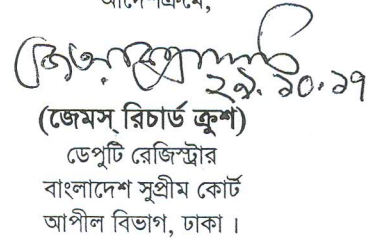 আদেশক্রমে,
২৯.১০.১৭
(জেমস্ রিচার্ড ক্রুশ)
ডেপুটি রেজিস্ট্রার
বাংলাদেশ সুপ্রীম কোর্ট
আপীল বিভাগ, ঢাকা ।